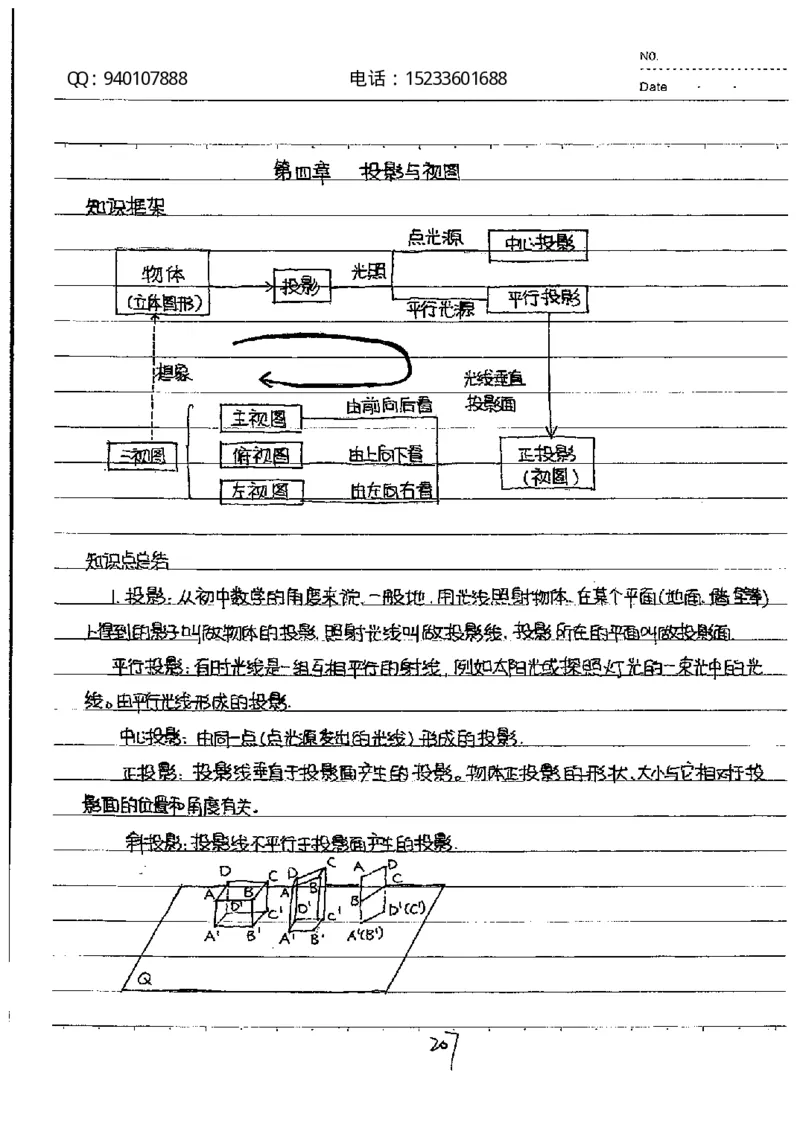 NO.
QQ：940107888 电话：15233601688
Date · ·
第四章 投影与视图
知识框架
点光源 中心投影
物体 光照
(立体图形) 投影
平行光源 平行投影
想象
光线垂直
投影面
主视图 由前向后看
三视图 俯视图 由上向下看 正投影
(视图)
左视图 由左向右看
知识点总结
1. 投影：从初中数学的角度来说，一般地，用光线照射物体，在某个平面(地面、墙壁等)
上得到的影子叫做物体的投影，照射光线叫做投影线，投影所在的平面叫做投影面.
平行投影：有时光线是一组互相平行的射线，例如太阳光或探照灯光的一束光中的光
线。由平行光线形成的投影.
中心投影：由同一点(点光源发出的光线)形成的投影.
正投影：投影线垂直于投影面产生的投影。物体正投影的形状、大小与它相对于投
影面的位置和角度有关。
斜投影：投影线不平行于投影面产生的投影.
D C D C A D
A B A B B C
D' C' D' C' D'(C')
A' B' A' B' A'(B')
Q
207